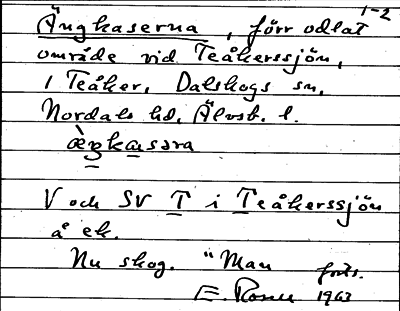 1-2
Ängkaserna, förr odlat
område vid Teåkerssjön,
i Teåker, Dalskogs sn,
Nordals hd, Älvsb. l.
äŋkasəra
V och SV T i Teåkerssjön
å ek.
Nu skog. "Man forts.
E. Rosell 1963